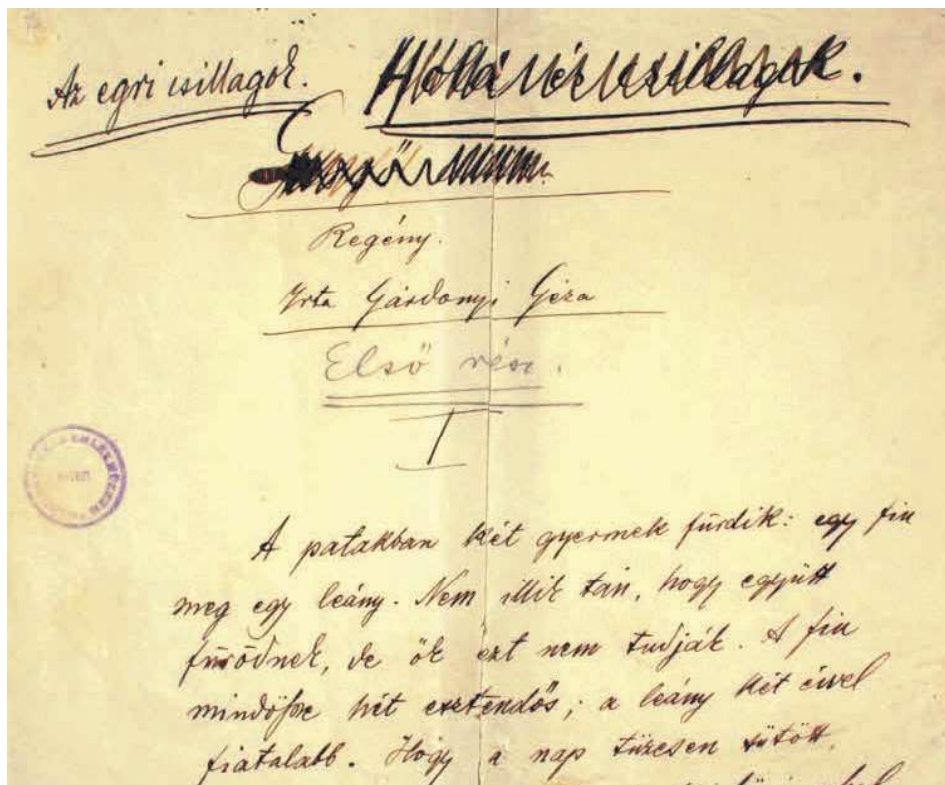 Az egri csillagok.
Regény.
Irta Gárdonyi Géza
Első rész.
I
A patakban két gyermek fürdik: egy fiu
meg egy leány. Nem illik tán, hogy együtt
fürödnek, de ők ezt nem tudják. A fiu
mindössze hét esztendős; a leány két évvel
fiatalabb. Hogy a nap tüzesen sütött,